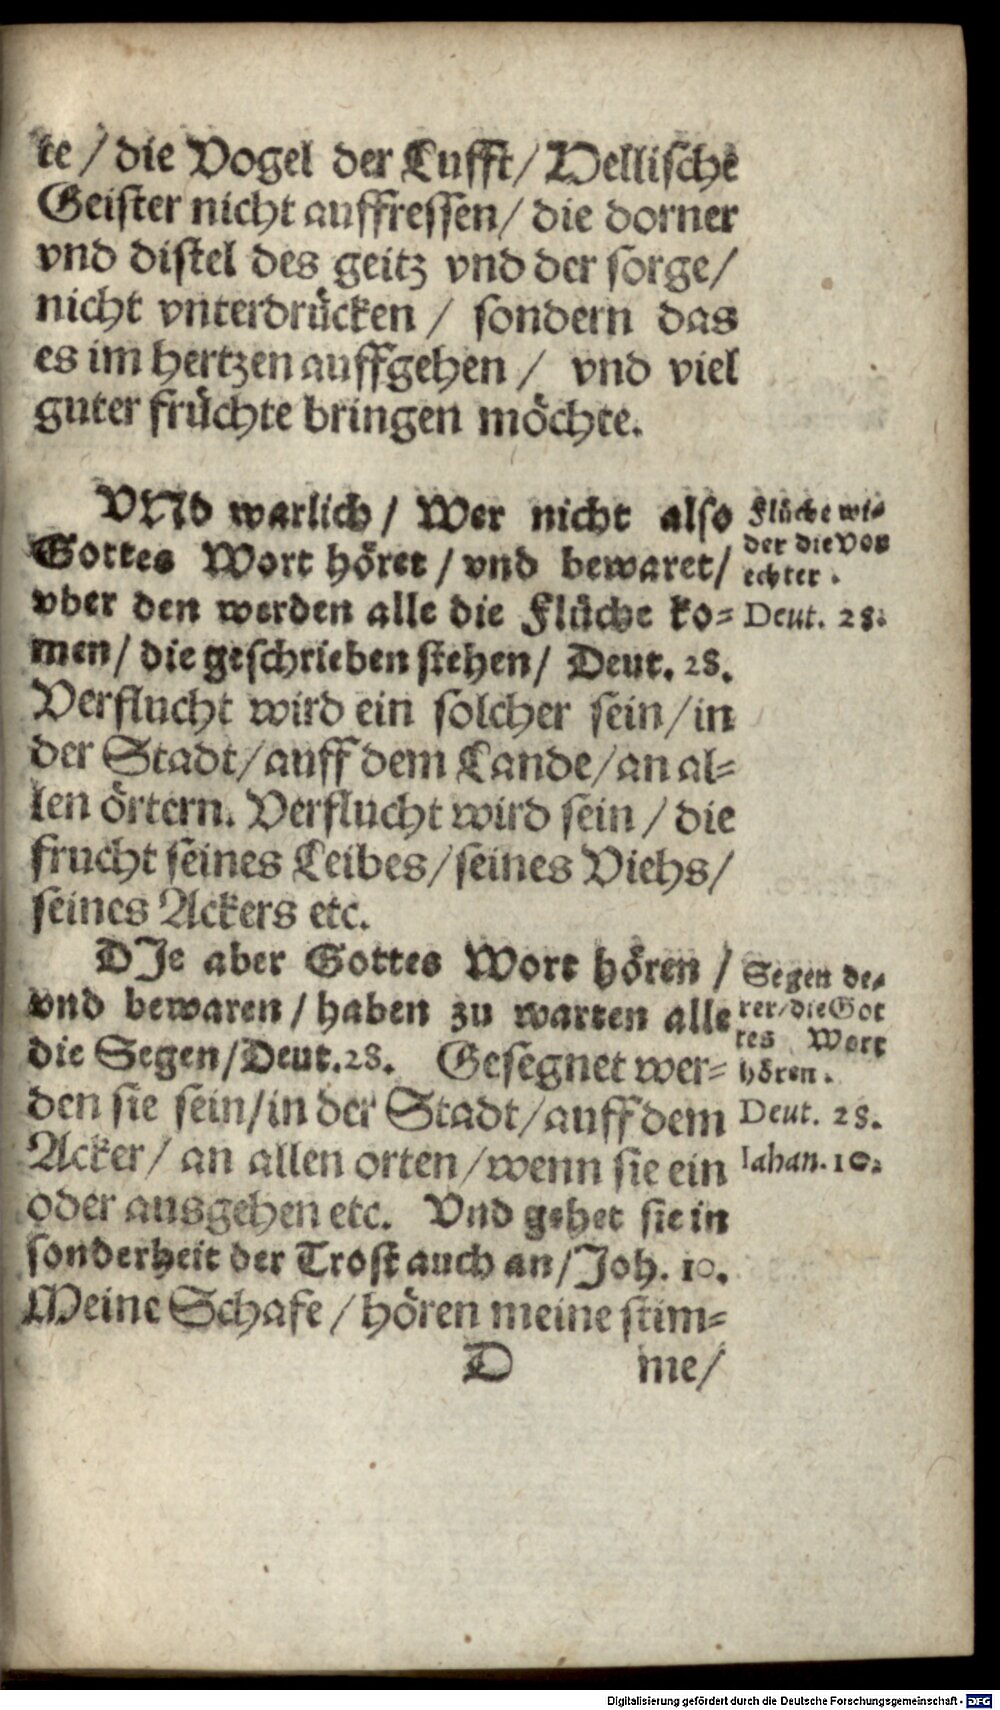 te / die Vogel der Lufft / Hellische
Geister nicht auffressen / die dorner
vnd distel des geitz vnd der sorge /
nicht vnterdrücken / sondern das
es im hertzen auffgehen / vnd viel
guter früchte bringen möchte.
VNd warlich / Wer nicht also
Gottes Wort höret / vnd bewaret /
vber den werden alle die Flüche ko=
men / die geschrieben stehen / Deut. 28.
Verflucht wird ein solcher sein / in
der Stadt / auff dem Lande / an al=
len örtern. Verflucht wird sein / die
frucht seines Leibes / seines Viehs /
seines Ackers etc.
Flüche wi=
der die Ver
echter.
Deut. 28.
DJe aber Gottes Wort hören /
vnd bewaren / haben zu warten alle
die Segen / Deut. 28. Gesegnet wer=
den sie sein / in der Stadt / auff dem
Acker / an allen orten / wenn sie ein
oder ausgehen etc. Vnd gehet sie in
sonderheit der Trost auch an / Joh. 10.
Meine Schafe / hören meine stim=
Segen de=
rer / die Got
tes Wort
hören.
Deut. 28.
Iahan. 10.
D me /
Digitalisierung gefördert durch die Deutsche Forschungsgemeinschaft - DFG